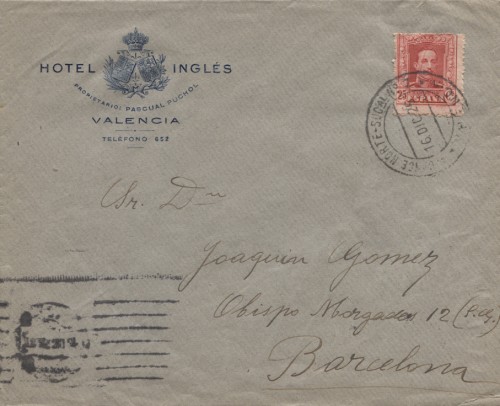 HOTEL INGLÉS
PROPIETARIO: PASCUAL PUCHOL
VALENCIA
TELÉFONO 652
16 DIC 26
NORTE-SUCURS
Sr. Dn
Joaquin Gomez
Obispo Morgades 12
Barcelona